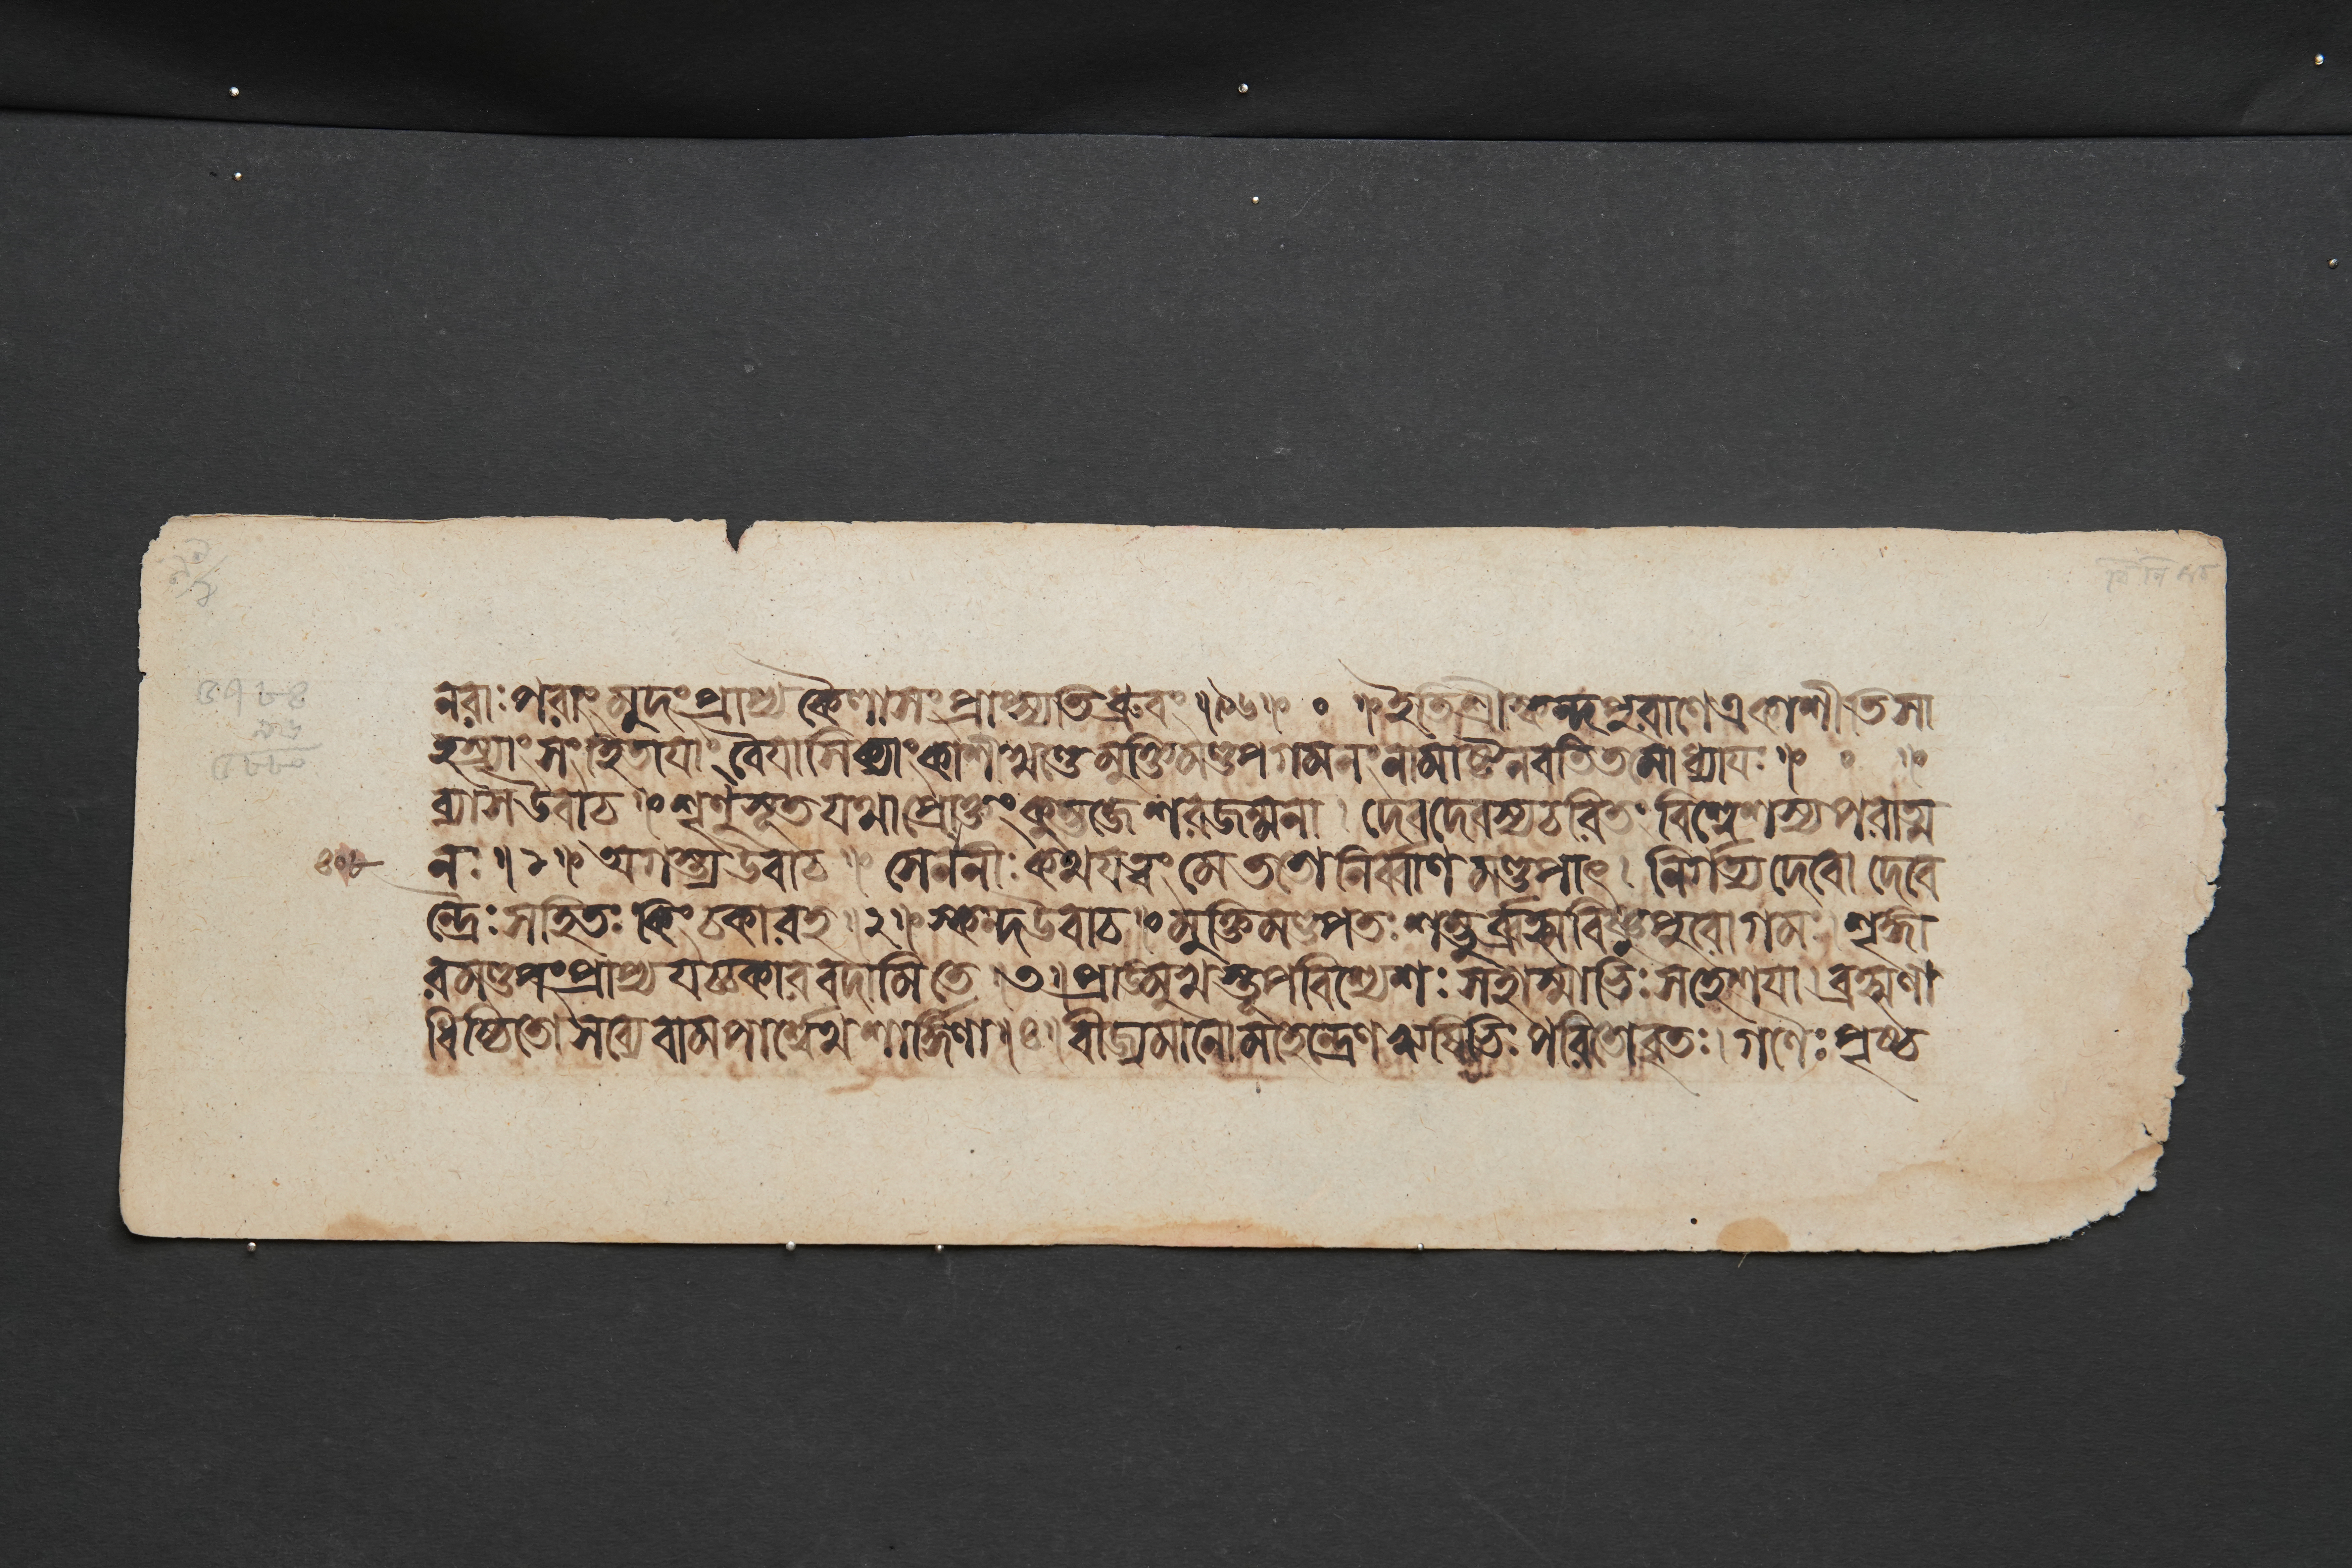 নরাঃ পরাং মুদং প্রাপ্য কৈলাসং প্রাপ্স্যতি ধ্রুবং ॥ ৯৬ ॥ ० ॥ ইতি শ্রীস্কন্দপুরাণে একাশীতিসা
হস্র্যাং সংহিতাযাং বৈযাসিক্যাং কাশীখণ্ডে মুক্তিমণ্ডপগমনং নামাষ্টৈনবতিতমোধ্যাযঃ ॥ ० ॥
ব্যাস উবাচ ॥ শৃণু সূত যথা প্রোক্তং কুম্ভজে শরজন্মনা । দেবদেবস্য চরিতং বিশ্বেশস্য পরাত্ম
নঃ ॥ ১ ॥ অগস্ত্য উবাচ ॥ সেনানীঃ কথয ত্বং মে ততো নির্ব্বাণমণ্ডপাৎ । নির্গত্য দেবো দেবে
৪০৮
ন্দ্রৈঃ সহিতঃ কিং চকার হ ॥ ২ ॥ স্কন্দ উবাচ ॥ মুক্তিমণ্ডপতঃ শম্ভুর্ব্রহ্মবিষ্ণুপুরোগমঃ । শৃঙ্গা
রমণ্ডপং প্রাপ্য যচ্চকার বদামি তে । ৩ । প্রাঙ্মুখস্তূপবিশ্যেশঃ সহাস্মাভিঃ সহেশযা । ব্রহ্মণা
ধিষ্ঠিতো সব্যে বামপার্শ্বেথ শার্ঙ্গিণা ॥ ৪ । বীজ্যমানো মহেন্দ্রেণ ঋষিভিঃ পরিতো বৃতঃ । গণৈঃ পৃষ্ঠ